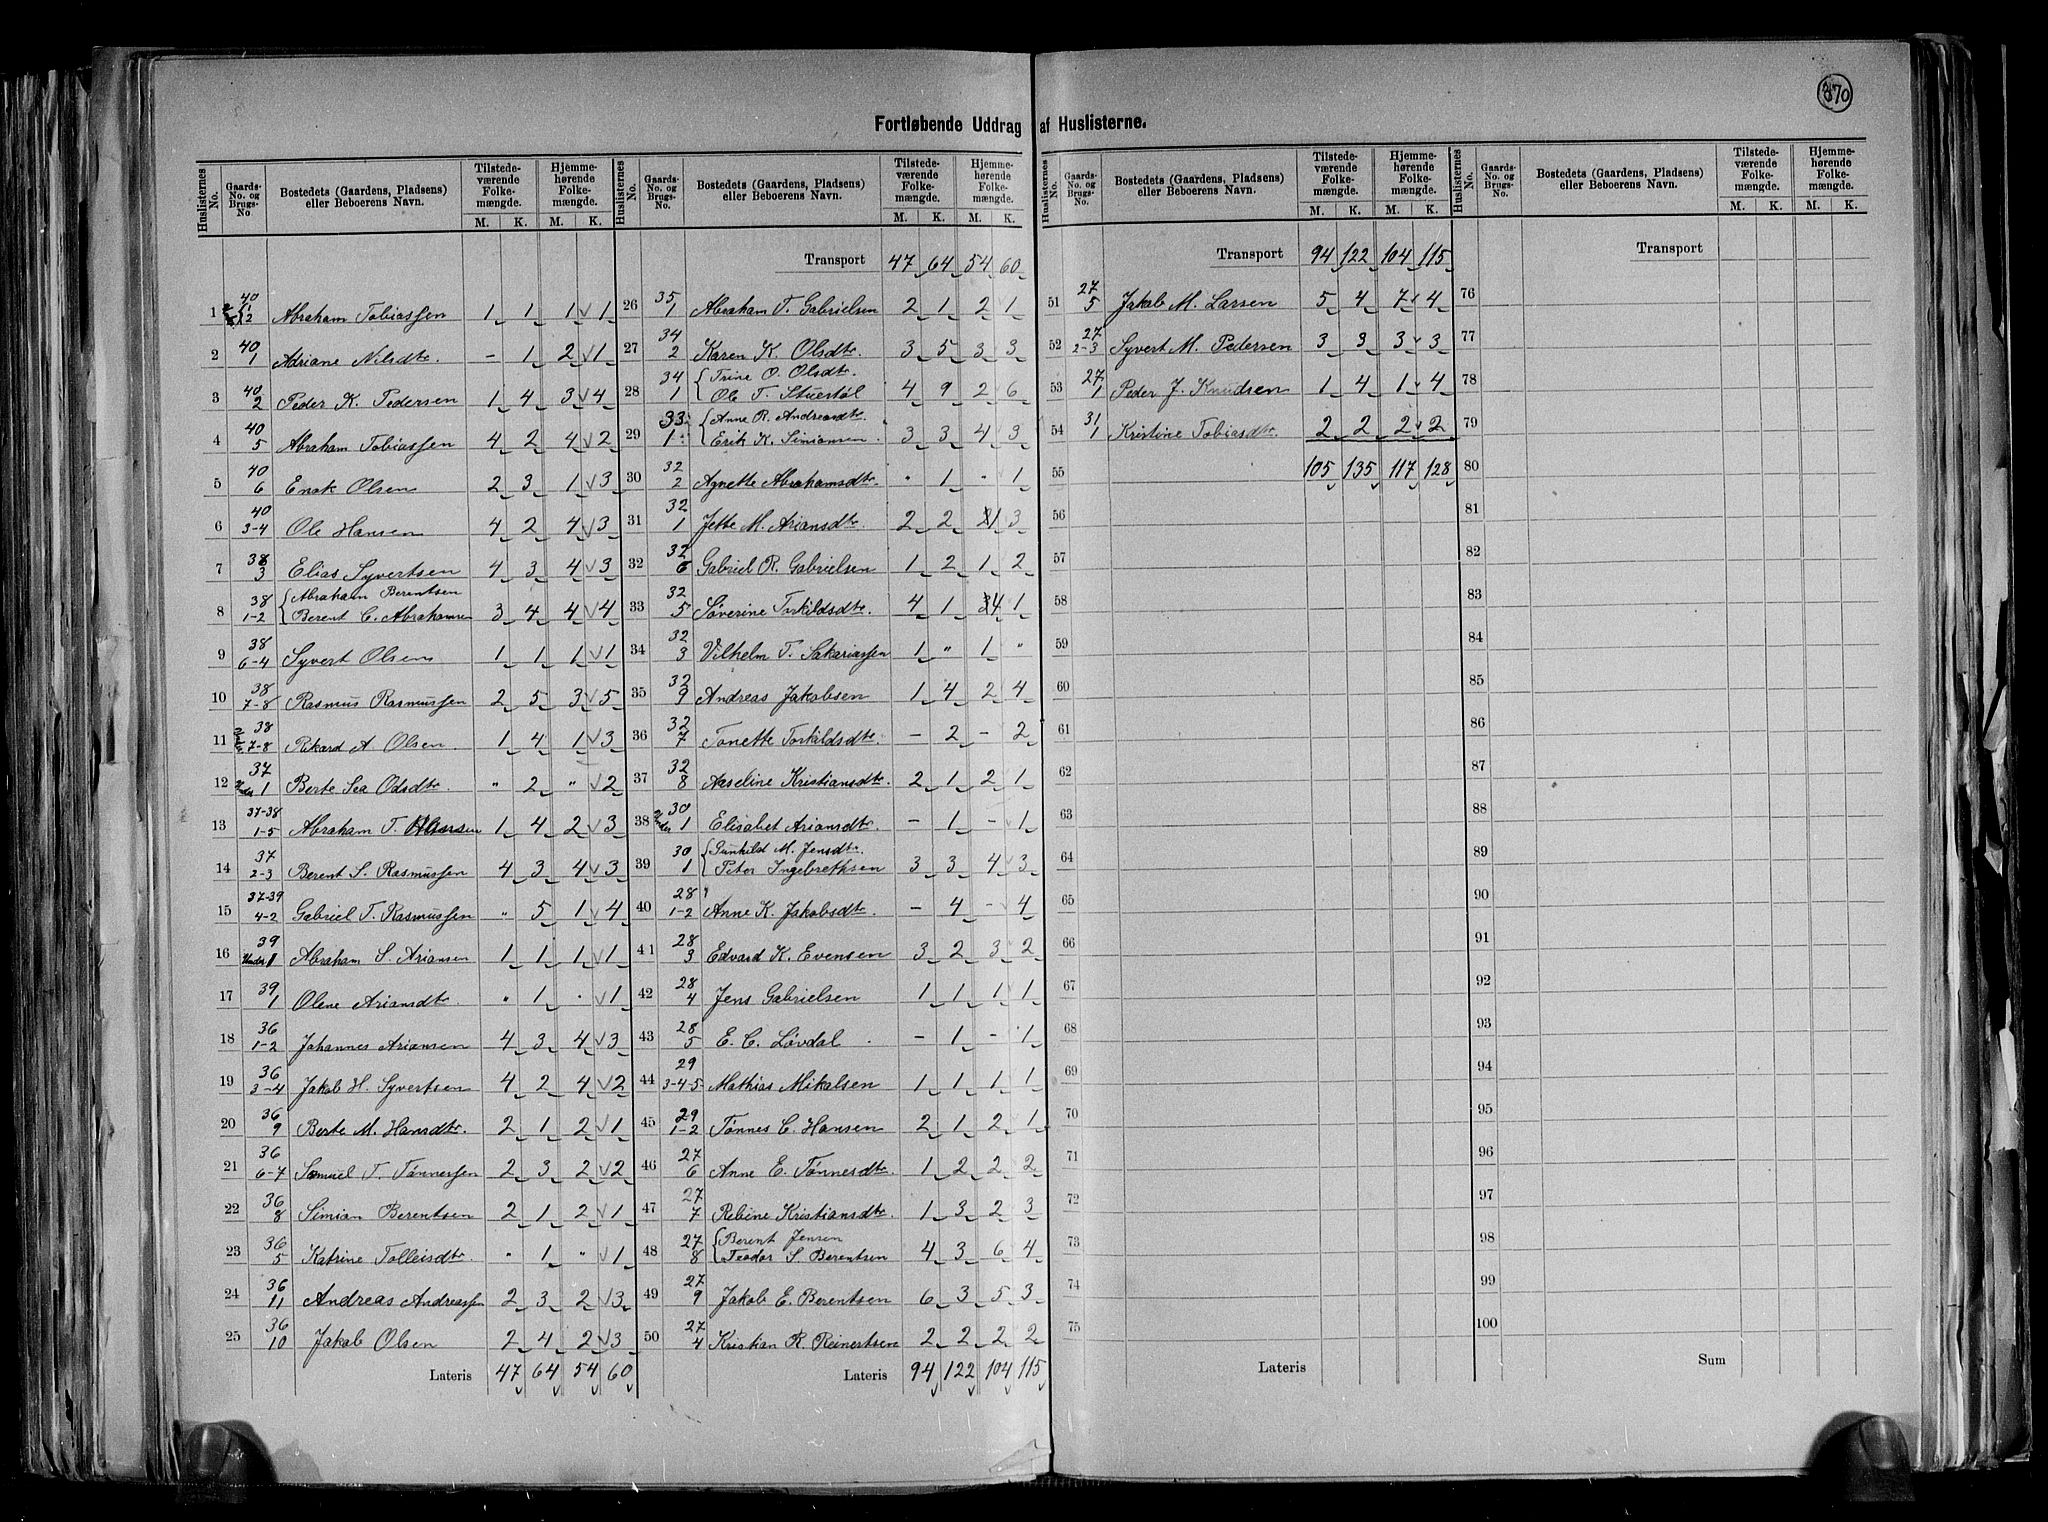 870
Fortløbende Uddrag af Huslisterne.
Huslisternes No. | Gaards-No. og Brugs-No. | Bostedets (Gaardens, Pladsens) eller Beboerens Navn. | Tilstedeværende Folkemængde. M. K. | Hjemmehørende Folkemængde. M. K.
1 40 1/2 Abraham Tobiassen 1 1 1 1
2 40 1 Adriane Nilsdtr. - 1 2 1
3 40 2 Peder K. Pedersen 1 4 3 4
4 40 5 Abraham Tobiassen 4 2 4 2
5 40 6 Enok Olsen 2 3 1 3
6 40 3-4 Ole Hansen 4 2 4 3
7 38 3 Elias Syvertsen 4 3 4 3
8 38 1-2 { Abraham Berentsen
Berent C. Abrahamsen 3 4 4 4
9 38 6-4 Syvert Olsen 1 1 1 1
10 38 7-8 Rasmus Rasmussen 2 5 3 5
11 38 7-8 Rikard A. Olsen 1 4 1 3
12 37 Under 1 Berte Sea Odsdtr " 2 " 2
13 37-38 1-5 Abraham T. 1 4 2 3
14 37 2-3 Berent S. Rasmussen 4 3 4 3
15 37-39 4-2 Gabriel T. Rasmussen " 5 1 4
16 39 Under 1 Abraham S. Ariansen 1 1 1 1
17 39 1 Olene Ariansdtr " 1 " 1
18 36 1-2 Johannes Ariansen 4 3 4 3
19 36 3-4 Jakob H. Syvertsen 4 2 4 2
20 36 9 Berte M. Hansdtr. 2 1 2 1
21 36 6-7 Samuel T. Tønnessen 2 3 2 2
22 36 8 Simian Berentsen 2 1 2 1
23 36 5 Katrine Tolleisdtr " 1 " 1
24 36 11 Andreas Andreassen 2 3 2 3
25 36 10 Jakob Olsen 2 4 2 3
Lateris 47 64 54 60
Huslisternes No. | Gaards-No. og Brugs-No. | Bostedets (Gaardens, Pladsens) eller Beboerens Navn. | Tilstedeværende Folkemængde. M. K. | Hjemmehørende Folkemængde. M. K.
Transport 47 64 54 60
26 35 1 Abraham T. Gabrielsen 2 1 2 1
27 34 2 Karen K. Olsdtr. 3 5 3 3
28 34 1 { Trine O. Olsdtr.
Ole T. Stuestøl 4 9 2 6
29 33 1 { Anne R. Andreasdtr
Erik K. Simiansen 3 3 4 3
30 32 2 Agnette Abrahamsdtr. " 1 " 1
31 32 1 Jette M. Ariansdtr 2 2 1 3
32 32 6 Gabriel R. Gabrielsen 1 2 1 2
33 32 5 Søverine Torkildsdtr. 4 1 4 1
34 32 3 Vilhelm T. Sakariassen 1 " 1 "
35 32 9 Andreas Jakobsen 1 4 2 4
36 32 7 Tonette Torkildsdtr. - 2 - 2
37 32 8 Aaseline Kristiansdtr. 2 1 2 1
38 30 Under 1 Elisabet Ariansdtr. - 1 - 1
39 30 1 { Gunhild M. Jensdtr.
Peter Ingebrethsen 3 3 4 3
40 28 1-2 Anne K. Jakobsdtr. - 4 - 4
41 28 3 Edvard K. Evensen 3 2 3 2
42 28 4 Jens Gabrielsen 1 1 1 1
43 28 5 E. C. Løvdal - 1 - 1
44 29 3-4-5 Mathias Mikalsen 1 1 1 1
45 29 1-2 Tønnes C. Hansen 2 1 2 1
46 27 6 Anne E. Tønnesdtr. 1 2 2 2
47 27 7 Rebine Kristiansdtr. 1 3 2 3
48 27 8 { Berent Jensen
Teodor S. Berentsen 4 3 6 4
49 27 9 Jakob E. Berentsen 6 3 5 3
50 27 4 Kristian R. Reinertsen 2 2 2 2
Lateris 94 122 104 115
Huslisternes No. | Gaards-No. og Brugs-No. | Bostedets (Gaardens, Pladsens) eller Beboerens Navn. | Tilstedeværende Folkemængde. M. K. | Hjemmehørende Folkemængde. M. K.
Transport 94 122 104 115
51 27 5 Jakob M. Larsen 5 4 7 4
52 27 2-3 Syvert M. Pedersen 3 3 3 3
53 27 1 Peder J. Knudsen 1 4 1 4
54 31 1 Kristine Tobiasdtr. 2 2 2 2
55 105 135 117 128
56
57
58
59
60
61
62
63
64
65
66
67
68
69
70
71
72
73
74
75
Lateris
Huslisternes No. | Gaards-No. og Brugs-No. | Bostedets (Gaardens, Pladsens) eller Beboerens Navn. | Tilstedeværende Folkemængde. M. K. | Hjemmehørende Folkemængde. M. K.
Transport
76
77
78
79
80
81
82
83
84
85
86
87
88
89
90
91
92
93
94
95
96
97
98
99
100
Sum